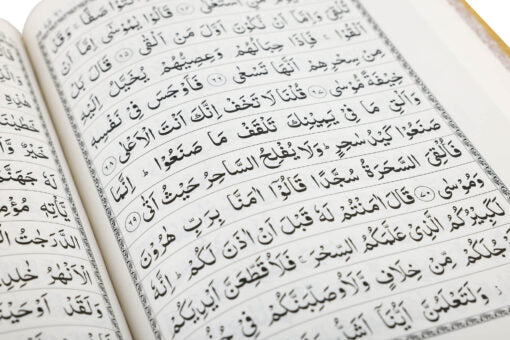 ائْتُوْا صَفًّا ۚ وَقَدْ
اسْتَعْلٰى ﴿٦٤﴾ قَالُوْا يٰمُوْسٰٓى اِمَّآ اَنْ
تُلْقِيَ وَاِمَّآ اَنْ نَّكُوْنَ اَوَّلَ مَنْ اَلْقٰى ﴿٦٥﴾ قَالَ بَلْ
اَلْقُوْا ۚ فَاِذَا حِبَالُهُمْ وَعِصِيُّهُمْ يُخَيَّلُ اِلَيْهِ
مِنْ سِحْرِهِمْ اَنَّهَا تَسْعٰى ﴿٦٦﴾ فَاَوْجَسَ فِيْ نَفْسِهٖ
خِيْفَةً مُّوْسٰى ﴿٦٧﴾ قُلْنَا لَا تَخَفْ اِنَّكَ اَنْتَ الْاَعْلٰى ﴿٦٨﴾
وَاَلْقِ مَا فِيْ يَمِيْنِكَ تَلْقَفْ مَا صَنَعُوْا ؕ اِنَّمَا
صَنَعُوْا كَيْدُ سٰحِرٍ ؕ وَلَا يُفْلِحُ السَّاحِرُ حَيْثُ اَتٰى ﴿٦٩﴾
فَاُلْقِيَ السَّحَرَةُ سُجَّدًا قَالُوْٓا اٰمَنَّا بِرَبِّ هٰرُوْنَ
وَمُوْسٰى ﴿٧٠﴾ قَالَ اٰمَنْتُمْ لَهٗ قَبْلَ اَنْ اٰذَنَ لَكُمْ ؕ اِنَّهٗ
لَكَبِيْرُكُمُ الَّذِيْ عَلَّمَكُمُ السِّحْرَ ۚ فَلَاُقَطِّعَنَّ اَيْدِيَكُمْ
جُلَكُمْ مِّنْ خِلَافٍ وَّلَاُوصَلِّبَنَّكُمْ فِيْ جُذُ
وَلَتَعْلَمُنَّ اَيُّنَآ اَشَدُّ
هٰذِهِ
خَطٰيٰنَا
خَيْرٌ وَّ
لَهٗ جَهَنَّمَ
يَّاْتِهٖ مُؤْمِ
الدَّرَجٰتُ
الْاَنْهٰرُ خٰلِدِ
وَلَقَدْ اَوْحَيْ